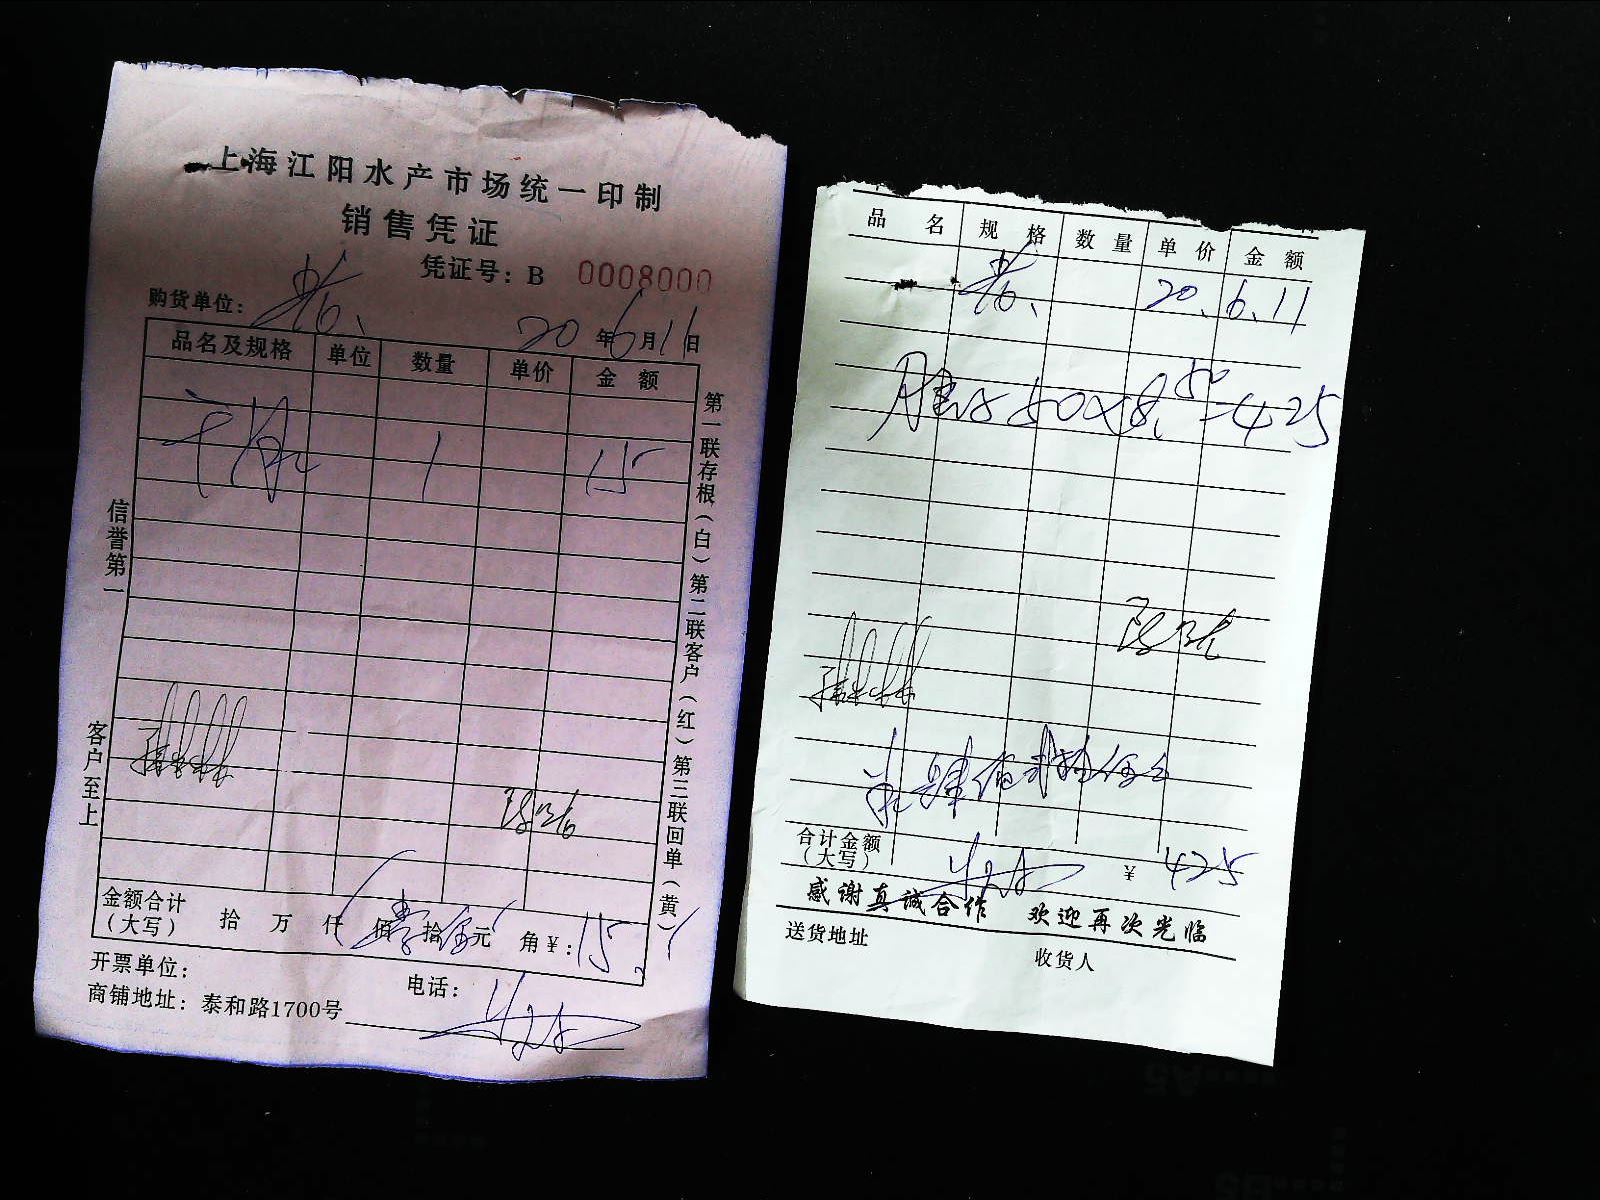 上海江阳水产市场统一印制
销售凭证
凭证号：B 0008000
购货单位：
20 年 6 月 11 日
品名及规格 单位 数量 单价 金额
1 15
信誉第一
客户至上
第一联存根（白）第二联客户（红）第三联回单（黄）
金额合计
（大写） 拾 万 仟 佰 壹 拾 伍 元 角 ¥：15
开票单位： 电话：
商铺地址：泰和路1700号
品名 规格 数量 单价 金额
20.6.11
50×8.50=425
肆佰贰拾伍元
合计金额
（大写） ¥ 425
感谢真诚合作 欢迎再次光临
送货地址 收货人